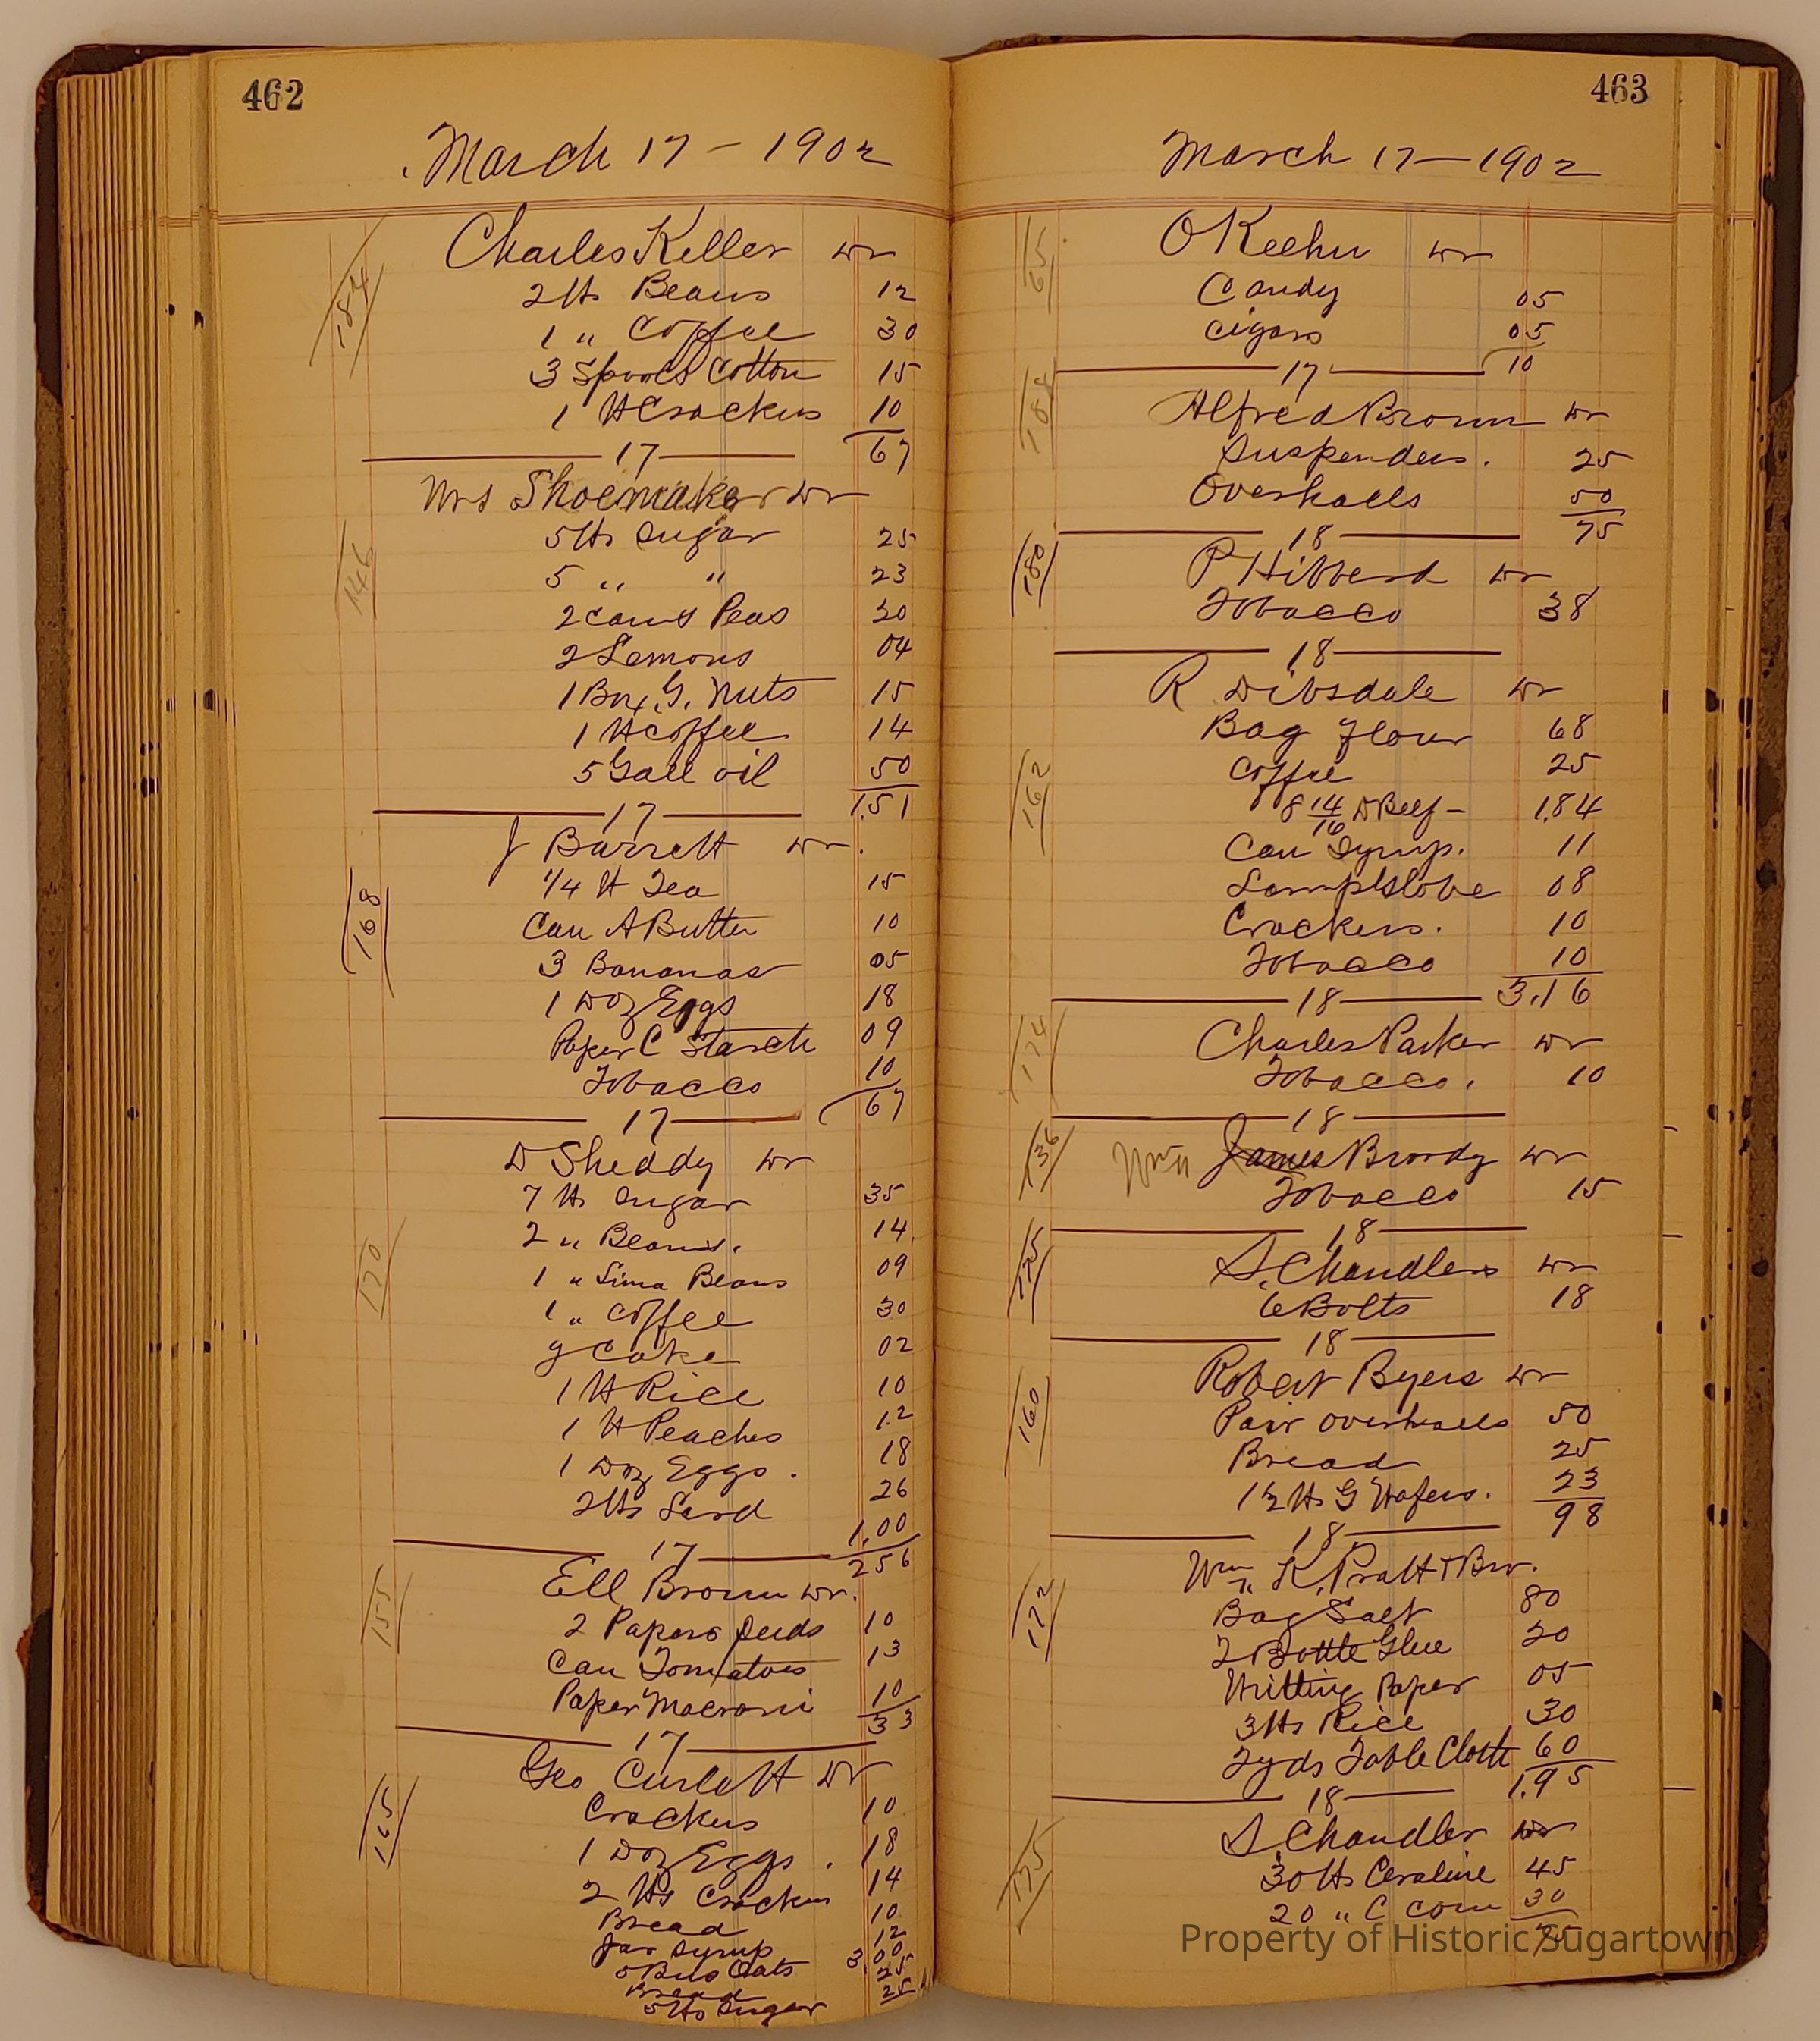 462
March 17 - 1902
184
Charles Keller Dr
2 lbs Beans 12
1 " Coffee 30
3 Spools Cotton 15
1 lb Crackers 10
67
17
Mrs Shoemaker Dr
146
5 lbs Sugar 25
5 " " 23
2 cans Peas 20
2 Lemons 04
1 Box G. Nuts 15
1 lb Coffee 14
5 Gall oil 50
1.51
17
J Barrett Dr.
168
1/4 lb Tea 15
Can A Butter 10
3 Bananas 05
1 Doz Eggs 18
Paper C Starch 09
Tobacco 10
67
17
D Sheddy Dr
7 lbs Sugar 35
2 " Beans. 14
170
1 " Lima Beans 09
1 " Coffee 30
Y Cake 02
1 lb Rice 10
1 lb Peaches 12
1 Doz Eggs. 18
2 lbs Lard 26
1.00
17
256
155
Ell Brown Dr.
2 Papers seeds 10
Can Tomatoes 13
Paper Macroni 10
33
17
Geo Curlett Dr
165
Crackers 10
1 Doz Eggs. 18
2 lbs Crackers 14
Bread 10
Jar Syrup 12
5 Bus Oats 3.00
Bread 25
5 lbs Sugar 25
463
March 17 - 1902
65
O Keehu Dr
Candy 05
Cigars 05
10
17
188
Alfred Brown Dr
Suspenders. 25
Overhalls 50
75
18
180
P Hibberd Dr
Tobacco 38
18
R Dibsdale Dr
Bag Flour 68
162
Coffee 25
8 14/16 D Beef - 1.84
Can Syrup. 11
Lamp Globe 08
Crackers. 10
Tobacco 10
3.16
18
174
Charles Parker Dr
Tobacco. 10
18
136
Wm James Broody Dr
Tobacco 15
18
175
S. Chandler Dr
6 Bolts 18
18
160
Robert Byers Dr
Pair overhalls 50
Bread 25
1 1/2 lbs G Wafers. 23
98
18
172
Wm K. Pratt & Bro.
Bag Salt 80
2 Bottle Glue 20
Writting Paper 05
3 lbs Rice 30
2 yds Table Cloth 60
1.95
18
175
S. Chandler Dr
30 lbs Ceraline 45
20 " C Corn 30
75
Property of Historic Sugartown